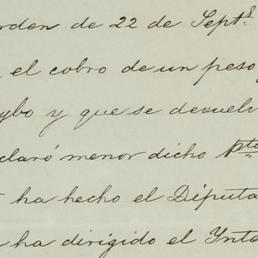 orden de 22 de Septe
el cobro de un peso
y que se devuel
claró menor dicho pto
ha hecho el Diputa
ha dirigido el Ynte